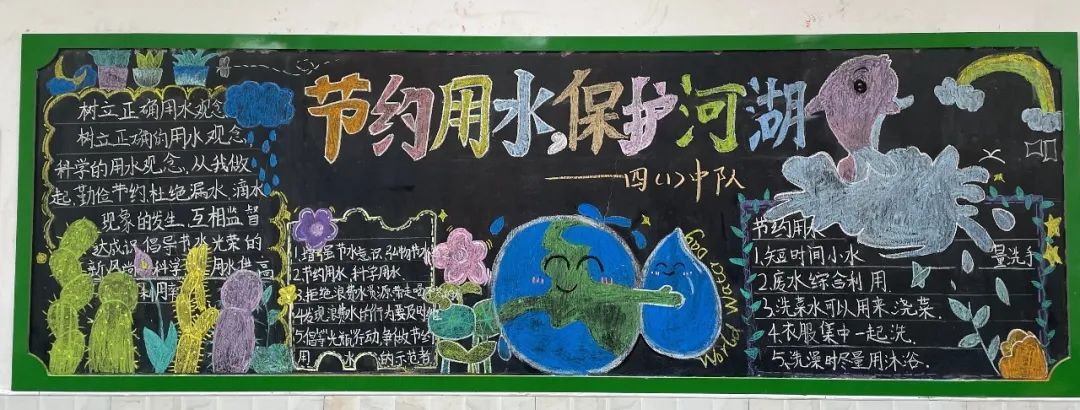 节约用水,保护河湖
——四(1)中队
树立正确用水观念
树立正确的用水观念,
科学的用水观念,从我做
起,勤俭节约,杜绝漏水、滴水
现象的发生,互相监督
达成识倡导节水光荣的
新风尚 科学 用水 高
利用
1.增强节水意识 弘扬节水
2.节约用水,科学用水
3.拒绝浪费水资源
4.发现浪费水的行为要及时
5.倡 先 行动,争做节约
用 水 的示范者
World
Water Day
节约用水
1.短时间小水 量洗手
2.废水综合利用
3.洗菜水可以用来浇菜.
4.衣服集中一起洗.
5.洗澡时尽量用沐浴.